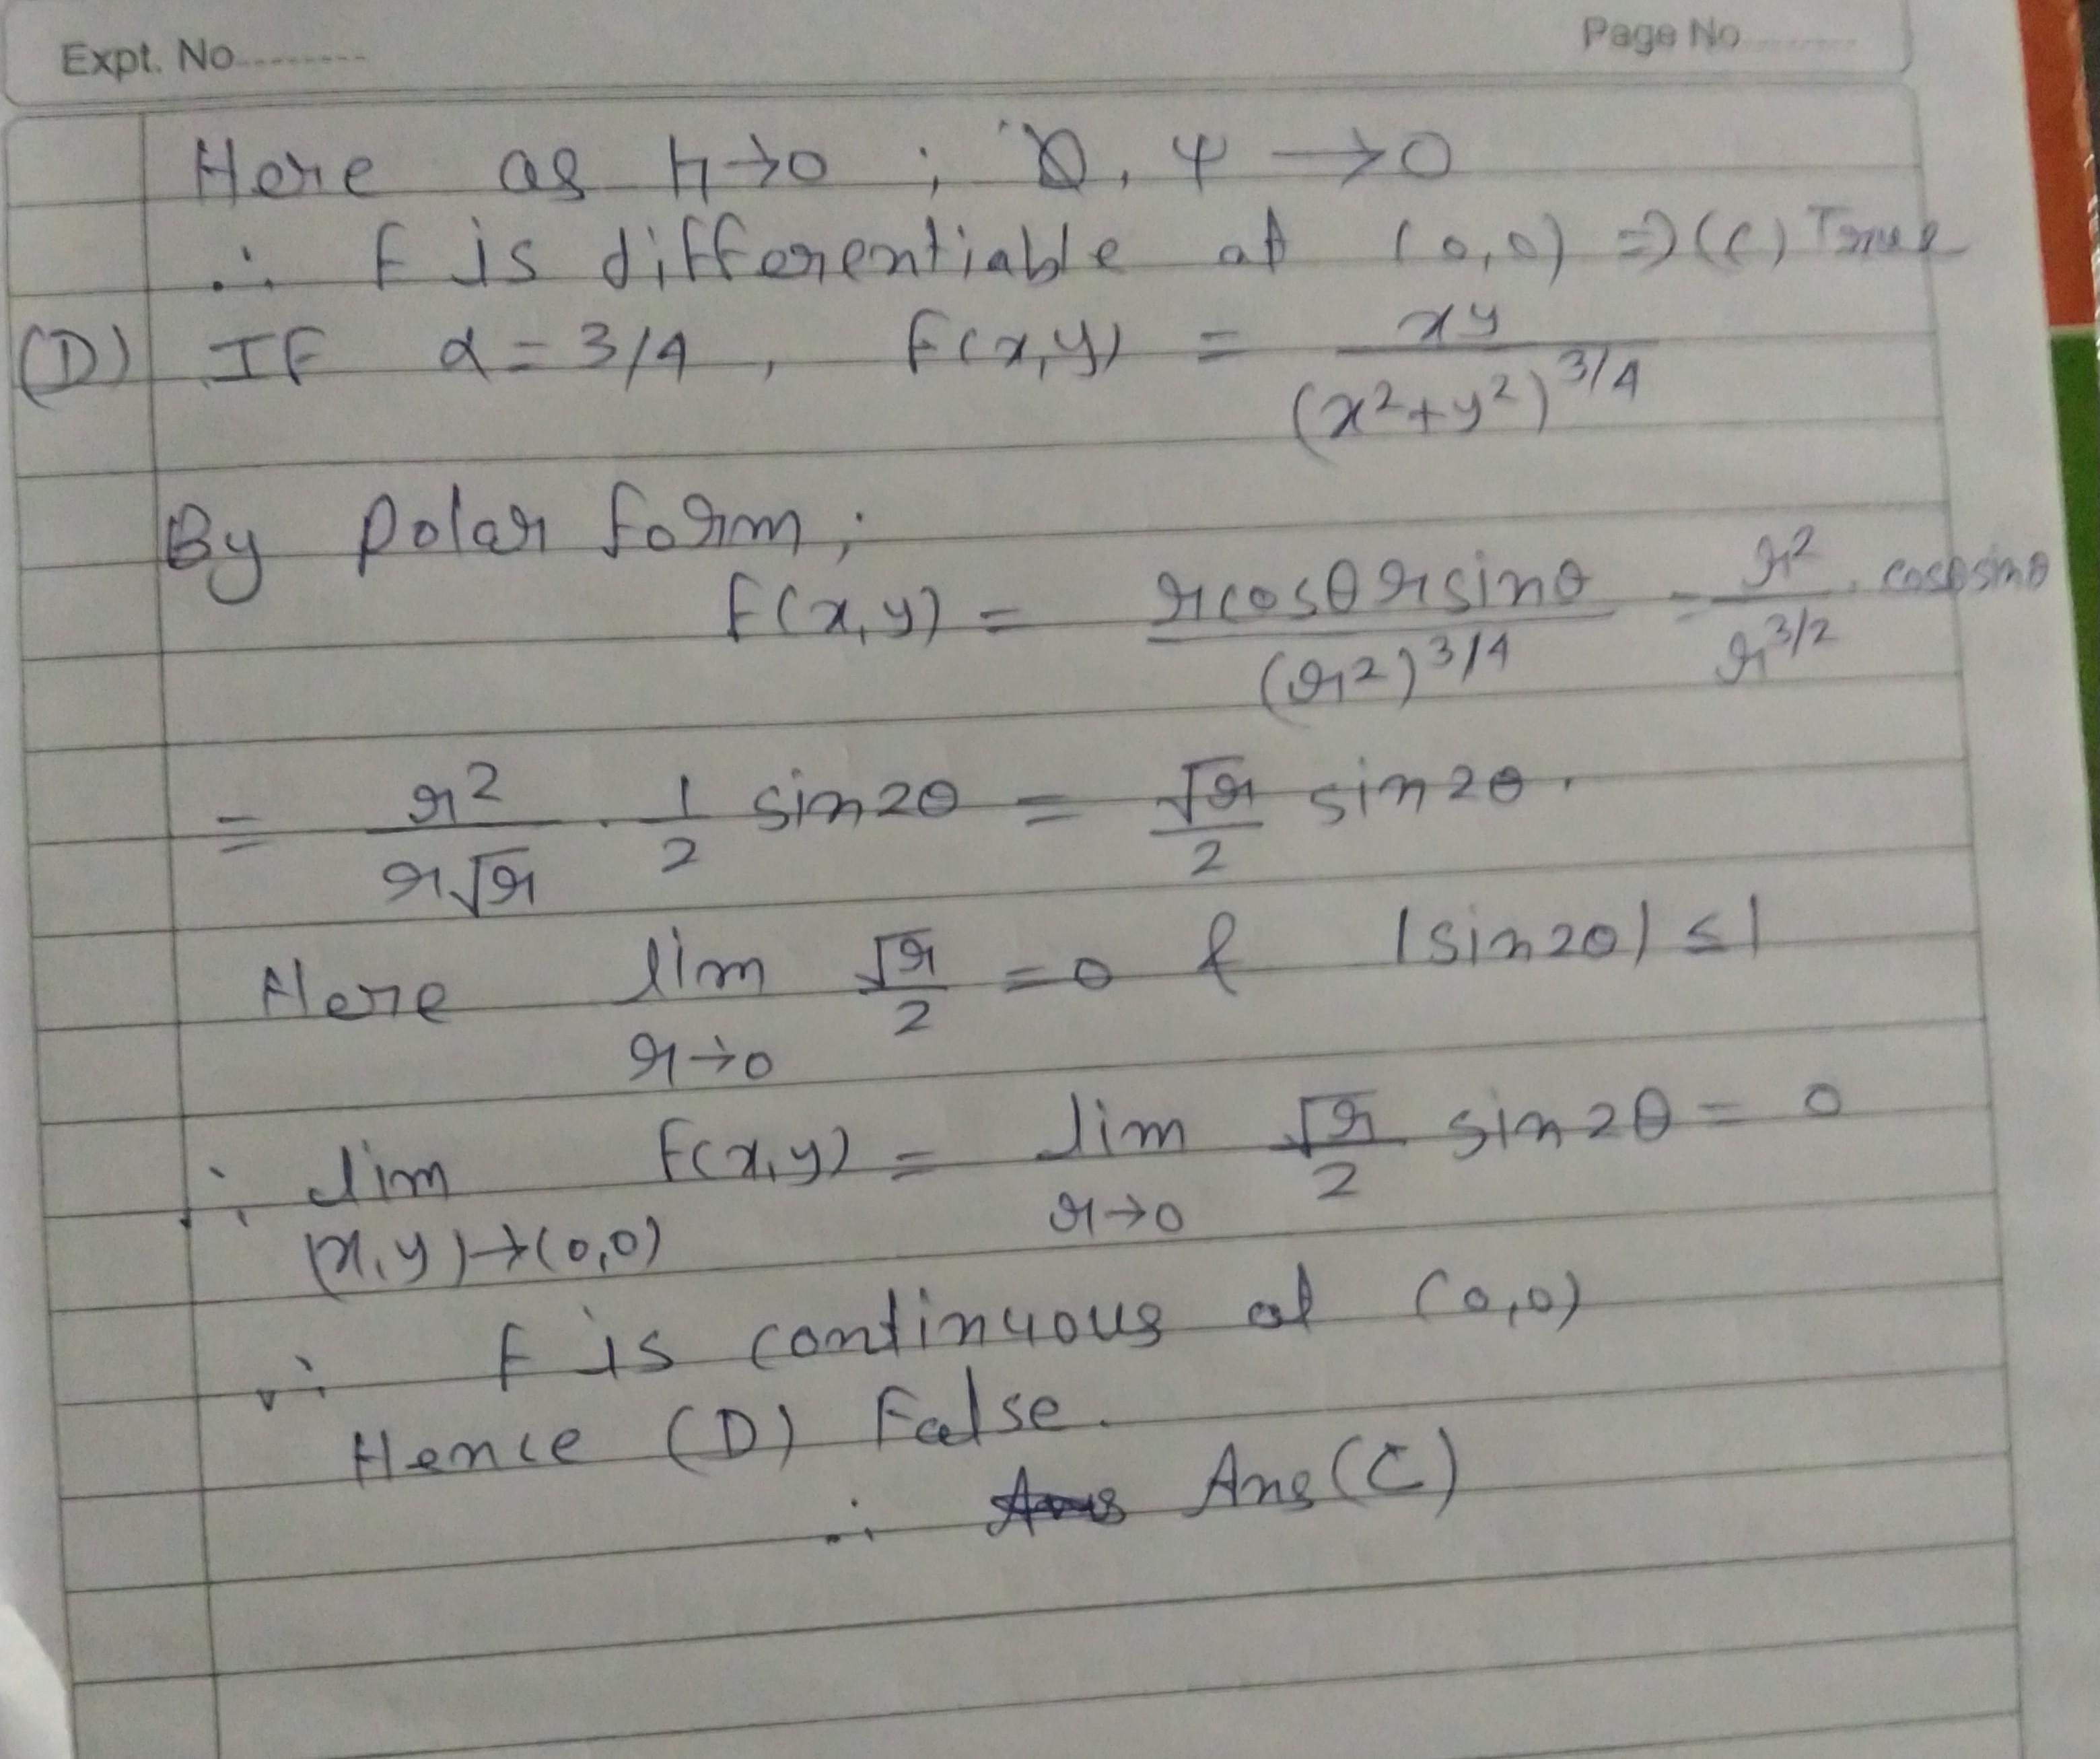 Expt. No.
Page No.
Here as h→0 ; Ø, ψ →0
∴ f is differentiable at (0,0) ⇒ (C) True
(D) If α = 3/4, f(x,y) = xy / (x²+y²)^3/4
By polar form;
f(x,y) = r cosθ r sinθ / (r²)^3/4 = r² / r^3/2 . cosθ sinθ
= r² / r√r . 1/2 sin2θ = √r/2 sin2θ.
Here lim r→0 √r/2 = 0 & |sin2θ| ≤ 1
∴ lim (x,y)→(0,0) f(x,y) = lim r→0 √r/2 sin2θ = 0
∴ f is continuous at (0,0)
Hence (D) False.
∴ Ans (C)